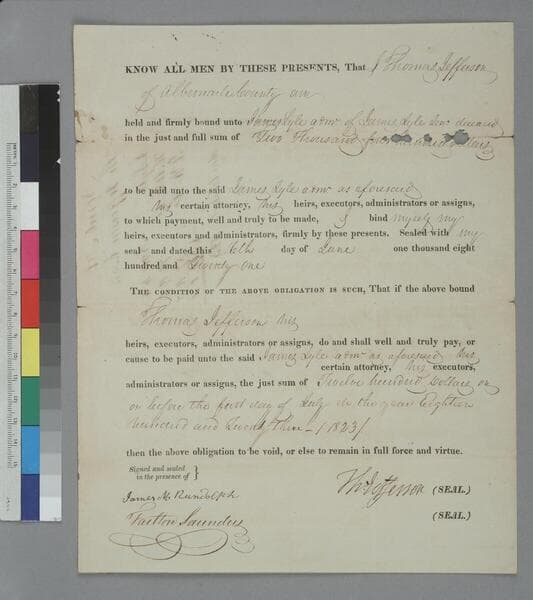 KNOW ALL MEN BY THESE PRESENTS, That I Thomas Jefferson
of Albemarle County am
held and firmly bound unto James Lyle admr of James Lyle Senr deceased
in the just and full sum of Two Thousand four hundred dollars
to be paid unto the said James Lyle admr as aforesaid
his certain attorney, his heirs, executors, administrators or assigns,
to which payment, well and truly to be made, I bind myself my
heirs, executors and administrators, firmly by these presents. Sealed with my
seal and dated this 6th day of June one thousand eight
hundred and Twenty one
THE CONDITION OF THE ABOVE OBLIGATION IS SUCH, That if the above bound
Thomas Jefferson his
heirs, executors, administrators or assigns, do and shall well and truly pay, or
cause to be paid unto the said James Lyle admr as aforesaid his
certain attorney, his executors,
administrators or assigns, the just sum of Twelve hundred Dollars on
or before the first day of July in the year Eighteen
hundred and Twenty three (1823)
then the above obligation to be void, or else to remain in full force and virtue.
Signed and sealed
in the presence of }
Th: Jefferson (SEAL.)
James M. Randolph
(SEAL.)
Saunders